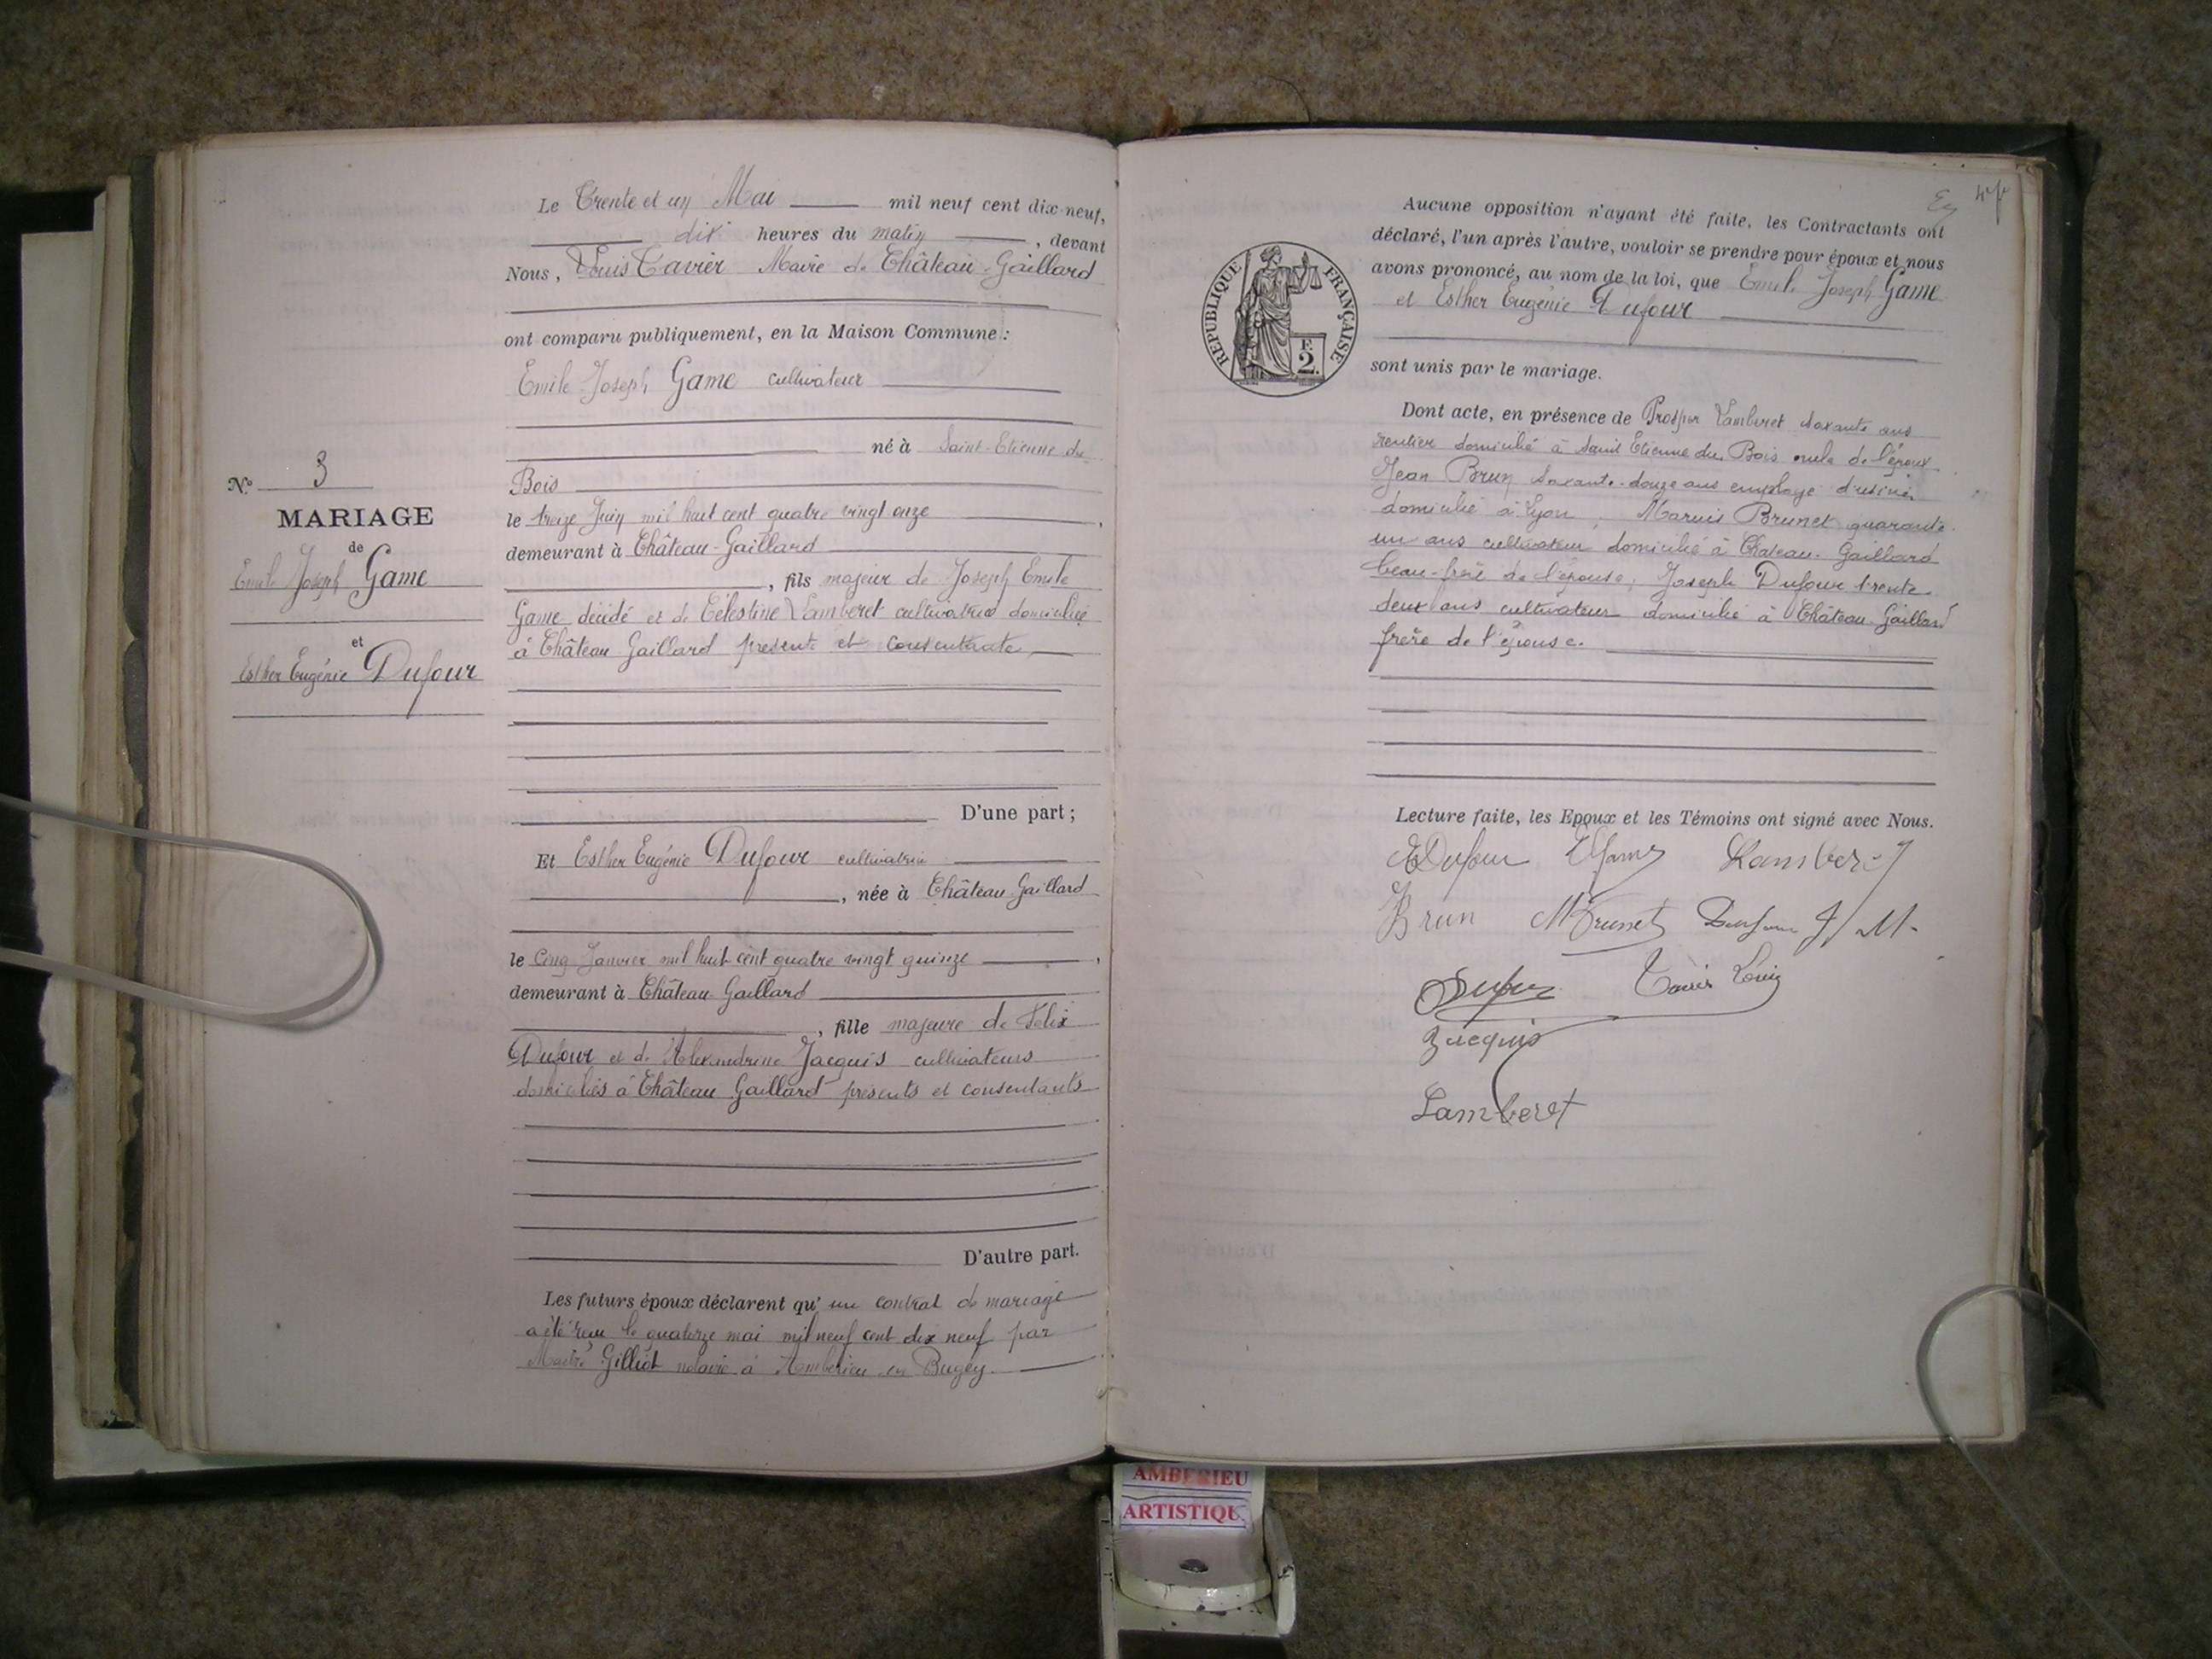 Le Trente et un Mai mil neuf cent dix-neuf,
dix heures du matin, devant
Nous, Louis Tavier Maire de Château-Gaillard
ont comparu publiquement, en la Maison Commune :
Emile Joseph Game cultivateur
né à Saint-Etienne du
Bois
le treize Juin mil huit cent quatre vingt onze,
demeurant à Château-Gaillard
, fils majeur de Joseph Emile
Game décédé et de Célestine Lamberet cultivatrice domiciliée
à Château Gaillard présente et consentante
N° 3
MARIAGE
de
Emile Joseph Game
et
Esther Eugénie Dufour
D'une part ;
Et Esther Eugénie Dufour cultivatrice
, née à Château-Gaillard
le cinq Janvier mil huit cent quatre vingt quinze,
demeurant à Château-Gaillard
, fille majeure de Félix
Dufour et de Alexandrine Jacquis cultivateurs
domiciliés à Château Gaillard présents et consentants
D'autre part.
Les futurs époux déclarent qu'un contrat de mariage
a été reçu le quatorze mai mil neuf cent dix neuf par
Maître Gilliot notaire à Ambérieu en Bugey.
REPUBLIQUE FRANÇAISE
F.
2.
Aucune opposition n'ayant été faite, les Contractants ont
déclaré, l'un après l'autre, vouloir se prendre pour époux et nous
avons prononcé, au nom de la loi, que Emile Joseph Game
et Esther Eugénie Dufour
sont unis par le mariage.
Dont acte, en présence de Prosper Lamberet soixante ans
rentier domicilié à Saint Etienne du Bois oncle de l'époux
Jean Brun soixante-douze ans employé d'usine
domicilié à Lyon ; Marius Brunet quarante
un ans cultivateur domicilié à Château-Gaillard
beau-frère de l'épouse ; Joseph Dufour trente
deux ans cultivateur domicilié à Château Gaillard
frère de l'épouse.
Lecture faite, les Epoux et les Témoins ont signé avec Nous.
E Dufour E Game Lamberet
Brun M Brunet Dufour J M
Dufour Tavier Louis
Jacquis
Lamberet
AMBERIEU
ARTISTIQUE